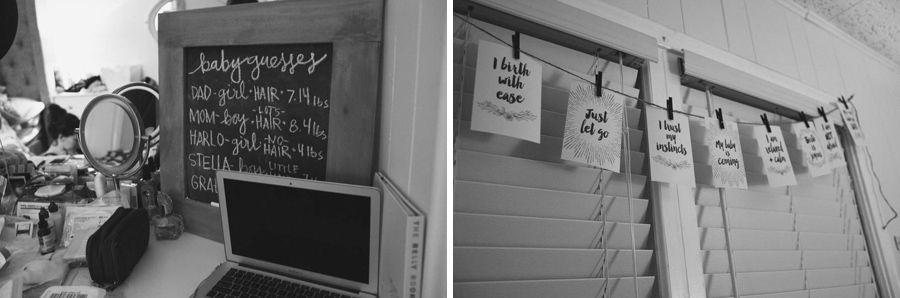 baby guesses
DAD-girl-HAIR·7.14 lbs
MOM-boy-LOTS-HAIR·8.4 lbs
HARLO-girl-NO-HAIR·4 lbs
STELLA- LITTLE
THE BELLY BOOK
I birth
with
ease
Just
let go
I trust
my
instincts
My baby
is
coming
I am
relaxed
+ calm